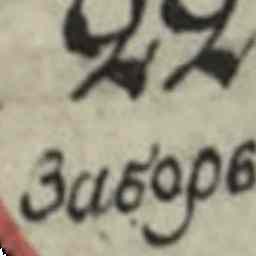 22
Заборъ